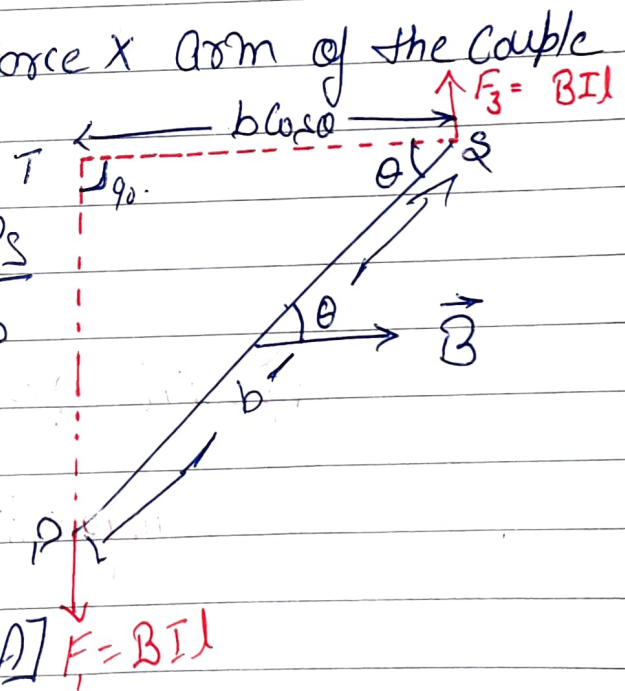 orce X arm of the Couple
F₃ = BIl
bCosθ
T
90.
θ
S
S
θ
B⃗
b
P
A] F₁ = BIl